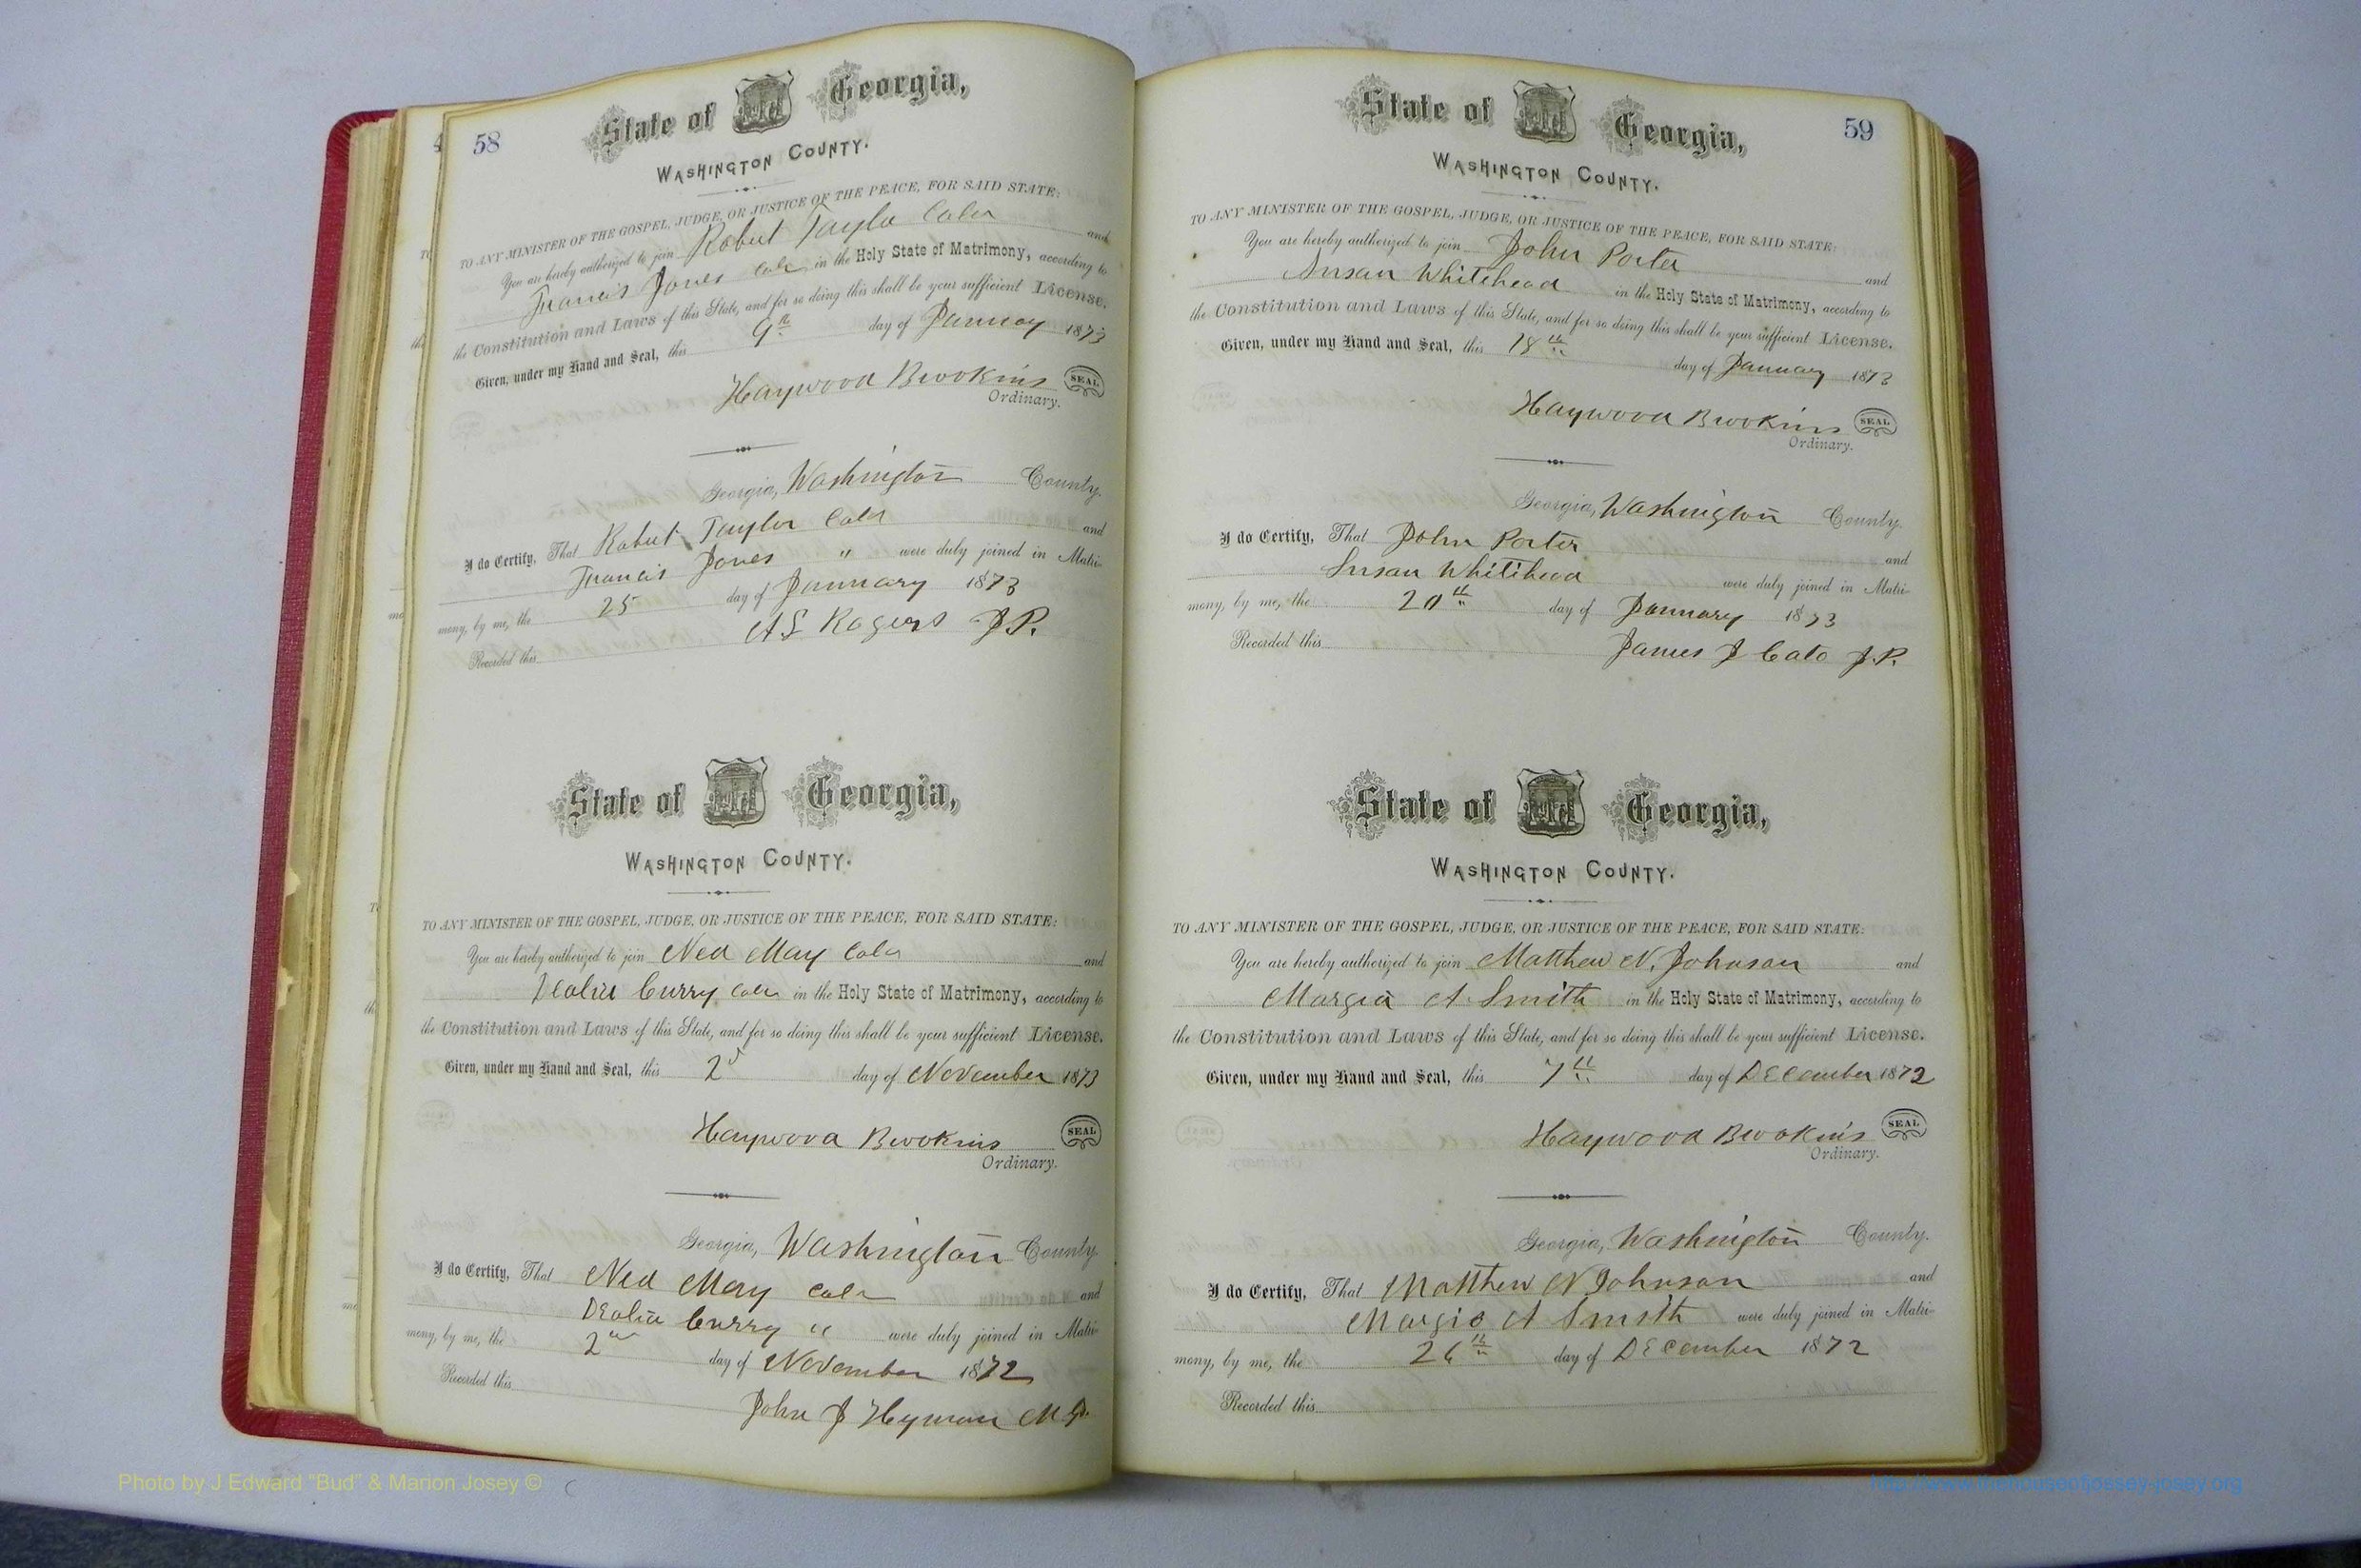 58
State of Georgia,
WASHINGTON COUNTY.
TO ANY MINISTER OF THE GOSPEL, JUDGE, OR JUSTICE OF THE PEACE, FOR SAID STATE:
You are hereby authorized to join Robert Taylor Cold and
Francis Jones Cold in the Holy State of Matrimony, according to
the Constitution and Laws of this State, and for so doing this shall be your sufficient License.
Given, under my Hand and Seal, this 9th day of January 1873
Haywood Brookins SEAL
Ordinary.
Georgia, Washington County.
I do Certify, That Robert Taylor Cold and
Francis Jones " were duly joined in Matri-
mony, by me, the 25 day of January 1873
A S Rogers J P.
Recorded this
State of Georgia,
WASHINGTON COUNTY.
TO ANY MINISTER OF THE GOSPEL, JUDGE, OR JUSTICE OF THE PEACE, FOR SAID STATE:
You are hereby authorized to join Ned May Cold and
Dealia Curry Cold in the Holy State of Matrimony, according to
the Constitution and Laws of this State, and for so doing this shall be your sufficient License.
Given, under my Hand and Seal, this 2d day of November 1873
Haywood Brookins SEAL
Ordinary.
Georgia, Washington County.
I do Certify, That Ned May Cold and
Dealia Curry " were duly joined in Matri-
mony, by me, the 2nd day of November 1872
Recorded this
John J Hyman M G.
59
State of Georgia,
WASHINGTON COUNTY.
TO ANY MINISTER OF THE GOSPEL, JUDGE, OR JUSTICE OF THE PEACE, FOR SAID STATE:
You are hereby authorized to join John Porter
Susan Whitehead and
in the Holy State of Matrimony, according to
the Constitution and Laws of this State, and for so doing this shall be your sufficient License.
Given, under my Hand and Seal, this 18th day of January 1873
Haywood Brookins SEAL
Ordinary.
Georgia, Washington County.
I do Certify, That John Porter and
Susan Whitehead were duly joined in Matri-
mony, by me, the 20th day of January 1873
Recorded this James J Cato J.P.
State of Georgia,
WASHINGTON COUNTY.
TO ANY MINISTER OF THE GOSPEL, JUDGE, OR JUSTICE OF THE PEACE, FOR SAID STATE:
You are hereby authorized to join Matthew N. Johnson and
Margia A. Smith in the Holy State of Matrimony, according to
the Constitution and Laws of this State, and for so doing this shall be your sufficient License.
Given, under my Hand and Seal, this 7th day of December 1872
Haywood Brookins SEAL
Ordinary.
Georgia, Washington County.
I do Certify, That Matthew N Johnson and
Margie A Smith were duly joined in Matri-
mony, by me, the 26th day of December 1872
Recorded this
Photo by J Edward "Bud" & Marion Josey ©
http://www.thehouseofjossey-josey.org